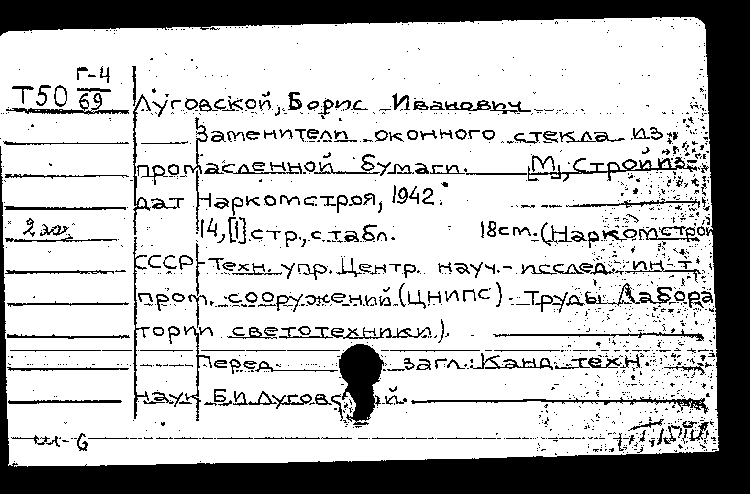 Г-4
Т50 69 Луговской, Борис Иванович
Заменители оконного стекла из
промасленной бумаги. [М], Стройиз-
дат Наркомстроя, 1942.
2 экз 14,[1] стр, с табл. 18см. (Наркомстрой
СССР-Техн. упр. Центр. науч.-исслед. ин-т
пром. сооружений (ЦНИПС). Труды Лабора
тории светотехники).
Перед загл.: Канд. техн.
наук Б.И. Луговской.
ш-6